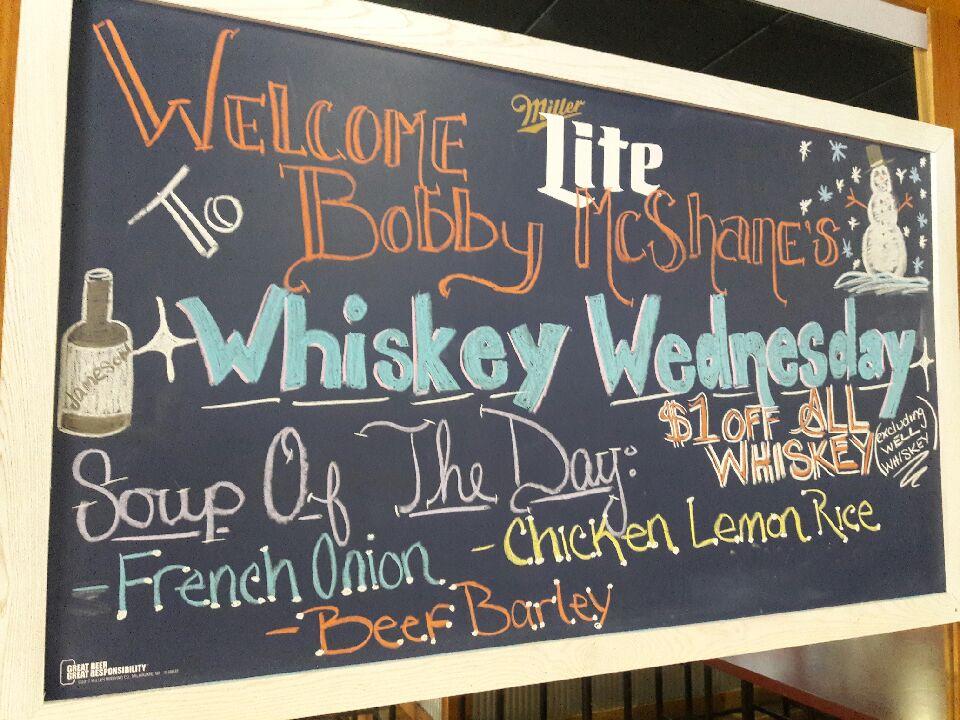 Welcome
Miller
Lite
To Bobby McShane's
Whiskey Wednesday
Jameson
$1 OFF ALL
WHISKEY
(excluding
WELL
WHISKEY)
Soup Of The Day:
- French Onion
- Chicken Lemon Rice
- Beef Barley
GREAT BEER
GREAT RESPONSIBILITY